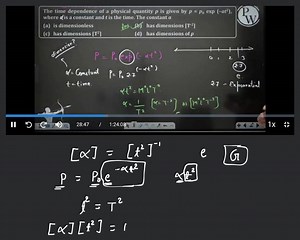 The time dependence of a physical quantity p is given by p = p₀ exp (-αt²),
where α is a constant and t is the time. The constant α
(a) is dimensionless
(b) has dimensions [T⁻²]
(c) has dimensions [T²]
(d) has dimensions of p
dimension?
P = P₀ exp (-αt²)
α - Constant
P = P₀ 2.7^(-αt²)
t - time
0 1 2 3
2.7
e
αt² = M⁰L⁰T⁰
α = 1/T²
28:47
[α] = [t²]⁻¹
e
G
P = P₀ e^-αt²
αt²
t² = T²
[α][t²] = 1